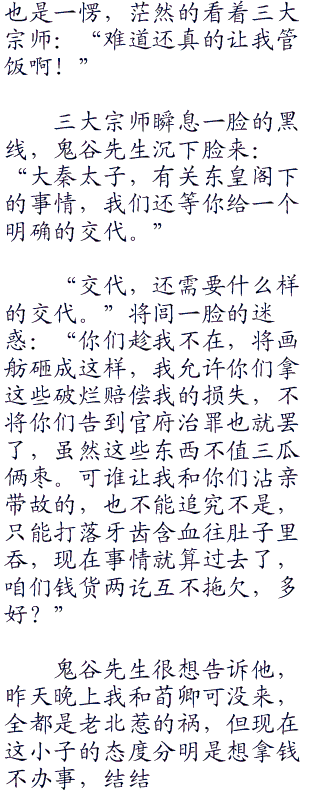 也是一愣，茫然的看着三大
宗师：“难道还真的让我管
饭啊！”
三大宗师瞬息一脸的黑
线，鬼谷先生沉下脸来：
“大秦太子，有关东皇阁下
的事情，我们还等你给一个
明确的交代。”
“交代，还需要什么样
的交代。”将闾一脸的迷
惑：“你们趁我不在，将画
舫砸成这样，我允许你们拿
这些破烂赔偿我的损失，不
将你们告到官府治罪也就罢
了，虽然这些东西不值三瓜
俩枣。可谁让我和你们沾亲
带故的，也不能追究不是，
只能打落牙齿含血往肚子里
吞，现在事情就算过去了，
咱们钱货两讫互不拖欠，多
好？”
鬼谷先生很想告诉他，
昨天晚上我和荀卿可没来，
全都是老北惹的祸，但现在
这小子的态度分明是想拿钱
不办事，结结